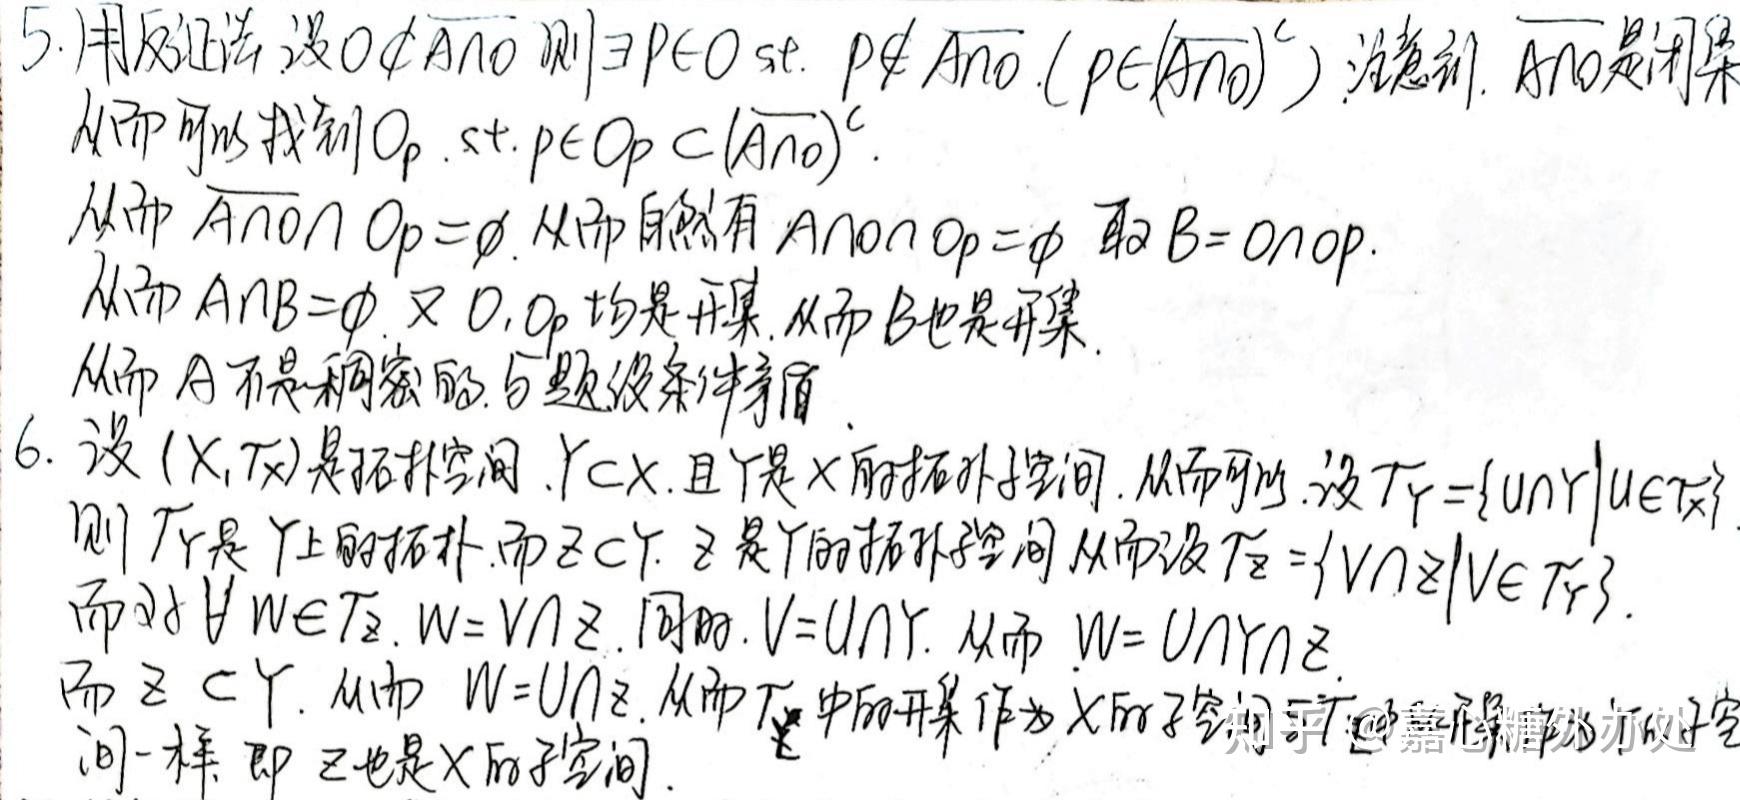 5. 用反证法 设 O⊄\overline{A∩O} 则 ∃P∈O st. P∉\overline{A∩O}.(P∈(\overline{A∩O})^c) 注意到. \overline{A∩O}是闭集
从而可以找到 O_p. st. p∈O_p⊂(\overline{A∩O})^c.
从而 \overline{A∩O}∩O_p=∅. 从而自然有 A∩O∩O_p=∅ 取 B=O∩O_p.
从而 A∩B=∅. 又 O, O_p 均是开集. 从而 B也是开集.
从而 A 不是稠密的. 与题设条件矛盾.
6. 设 (X,T_X) 是拓扑空间. Y⊂X. 且 Y是 X 的拓扑子空间. 从而可以. 设 T_Y={U∩Y|U∈T_X}.
则 T_Y是 Y上的拓扑. 而 Z⊂Y. Z 是Y的拓扑子空间 从而设 T_Z={V∩Z|V∈T_Y}.
而对 ∀W∈T_Z. W=V∩Z. 同时. V=U∩Y. 从而 W=U∩Y∩Z.
而 Z⊂Y. 从而 W=U∩Z. 从而 T_Z 中的开集作为 X的子空间 子空
间一样. 即 Z也是X的子空间.
知乎 @嘉心糖外亦处